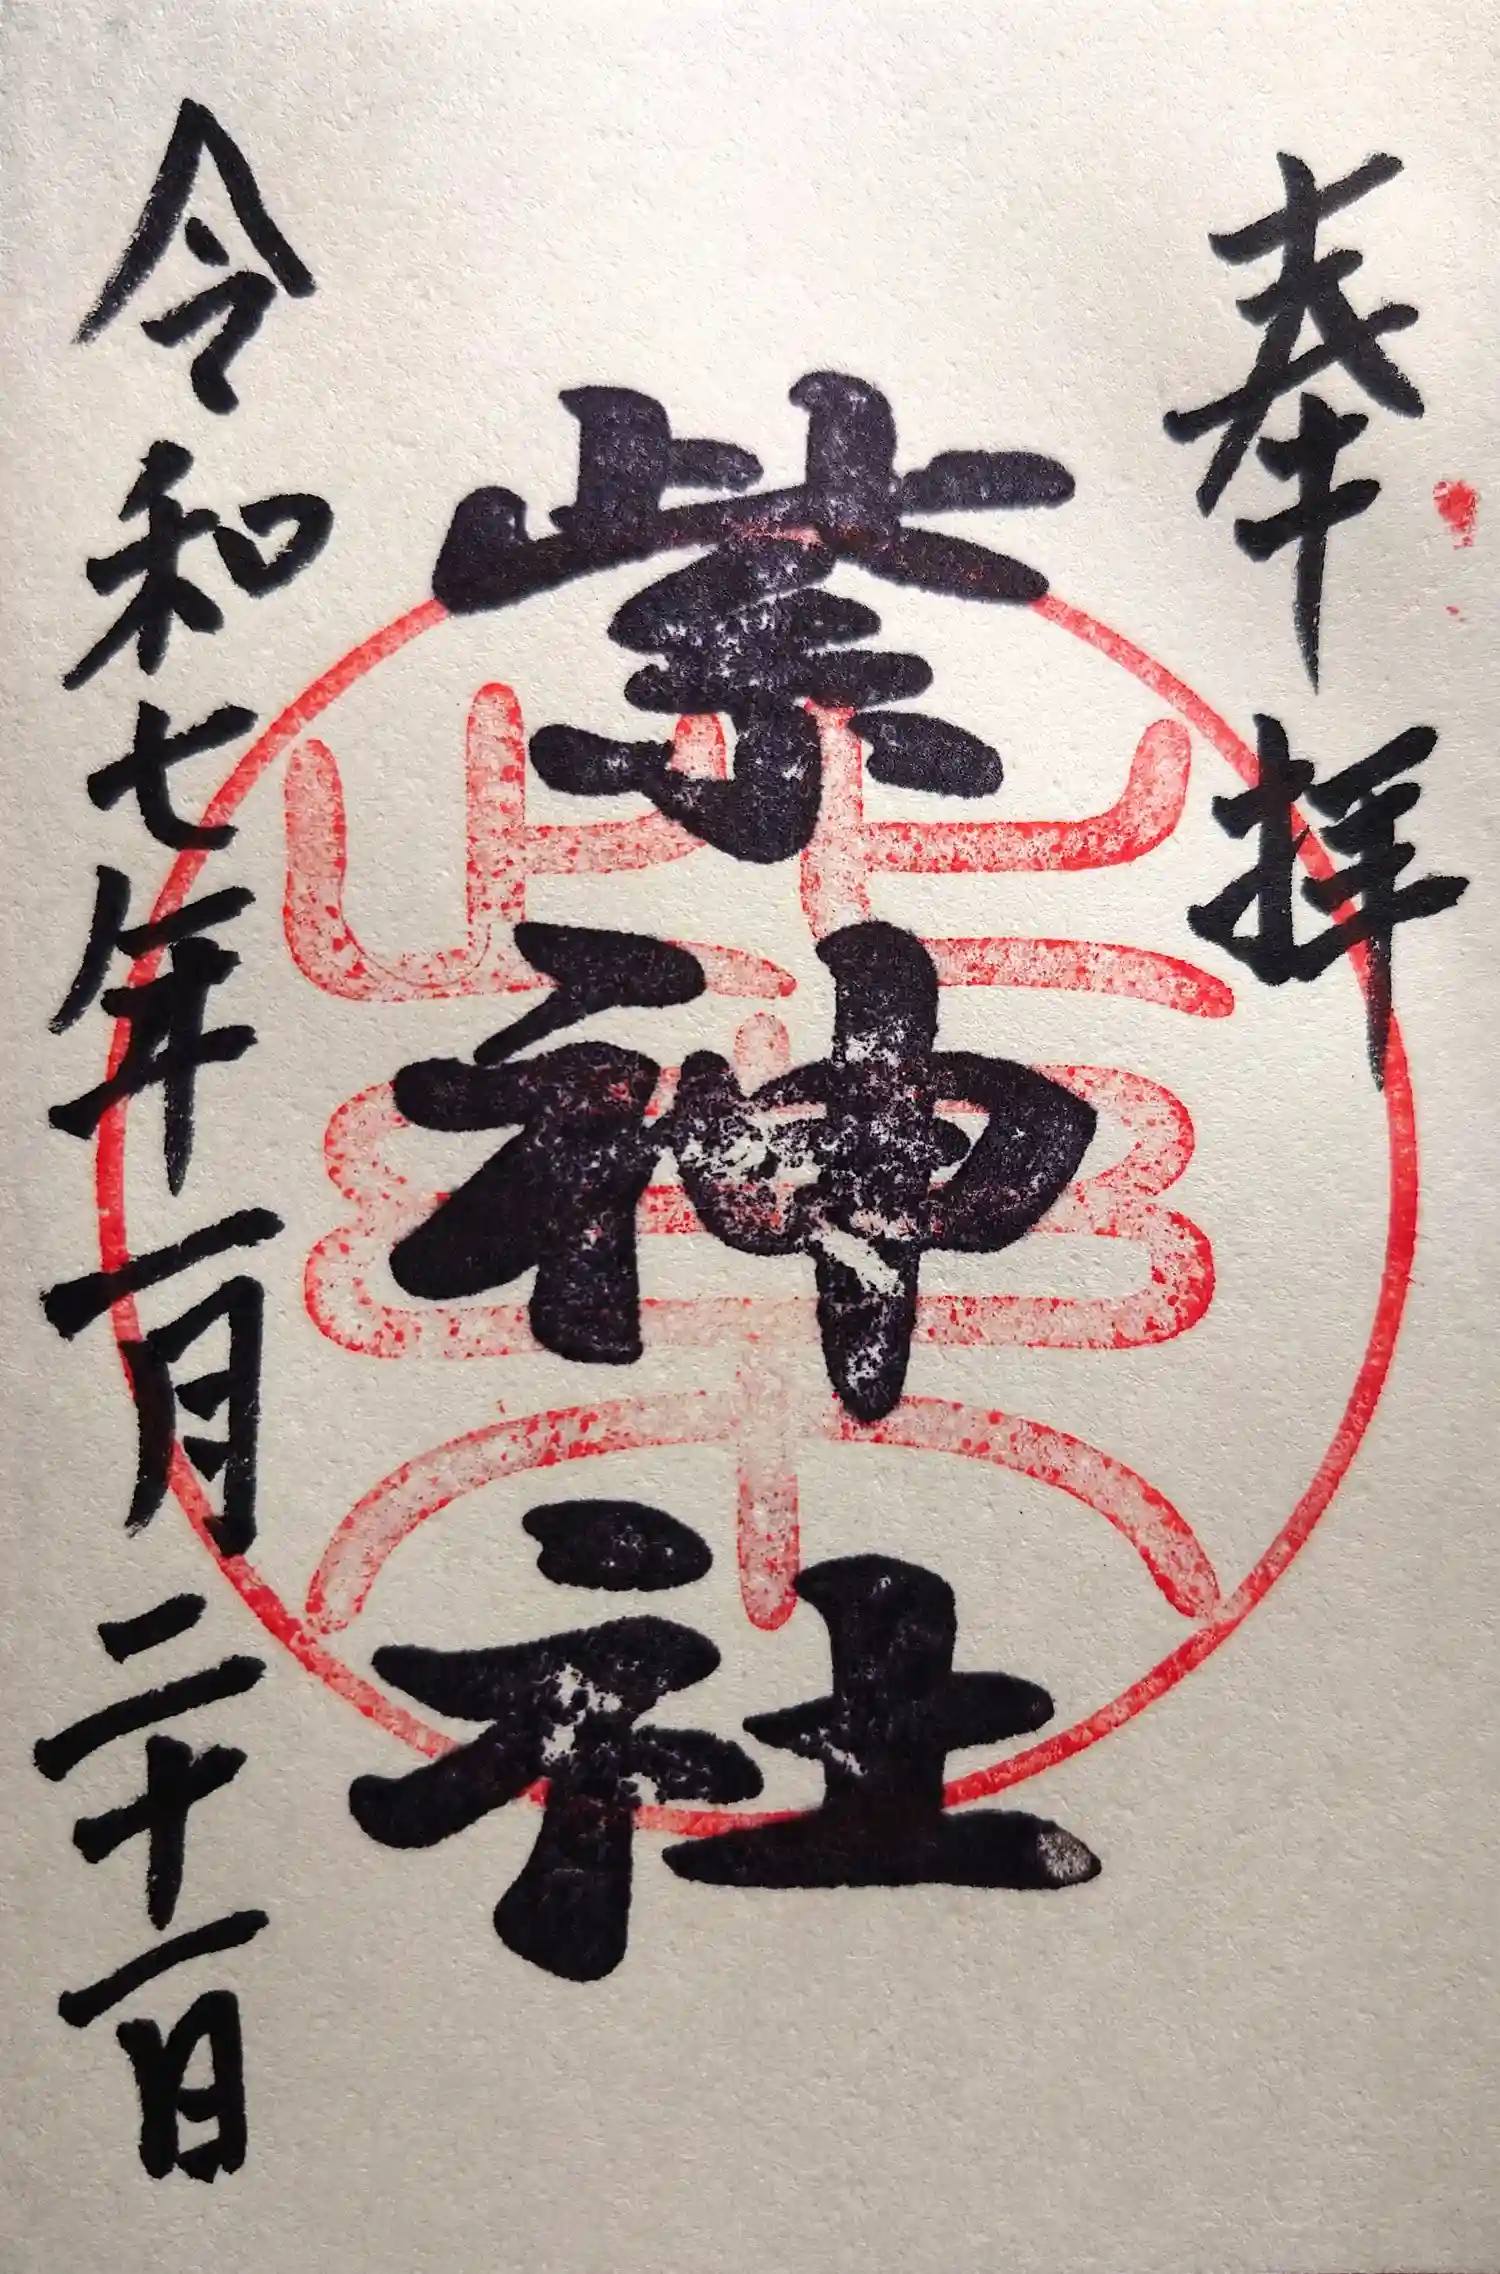 奉拝
紫神社
紫
令和七年一月二十一日